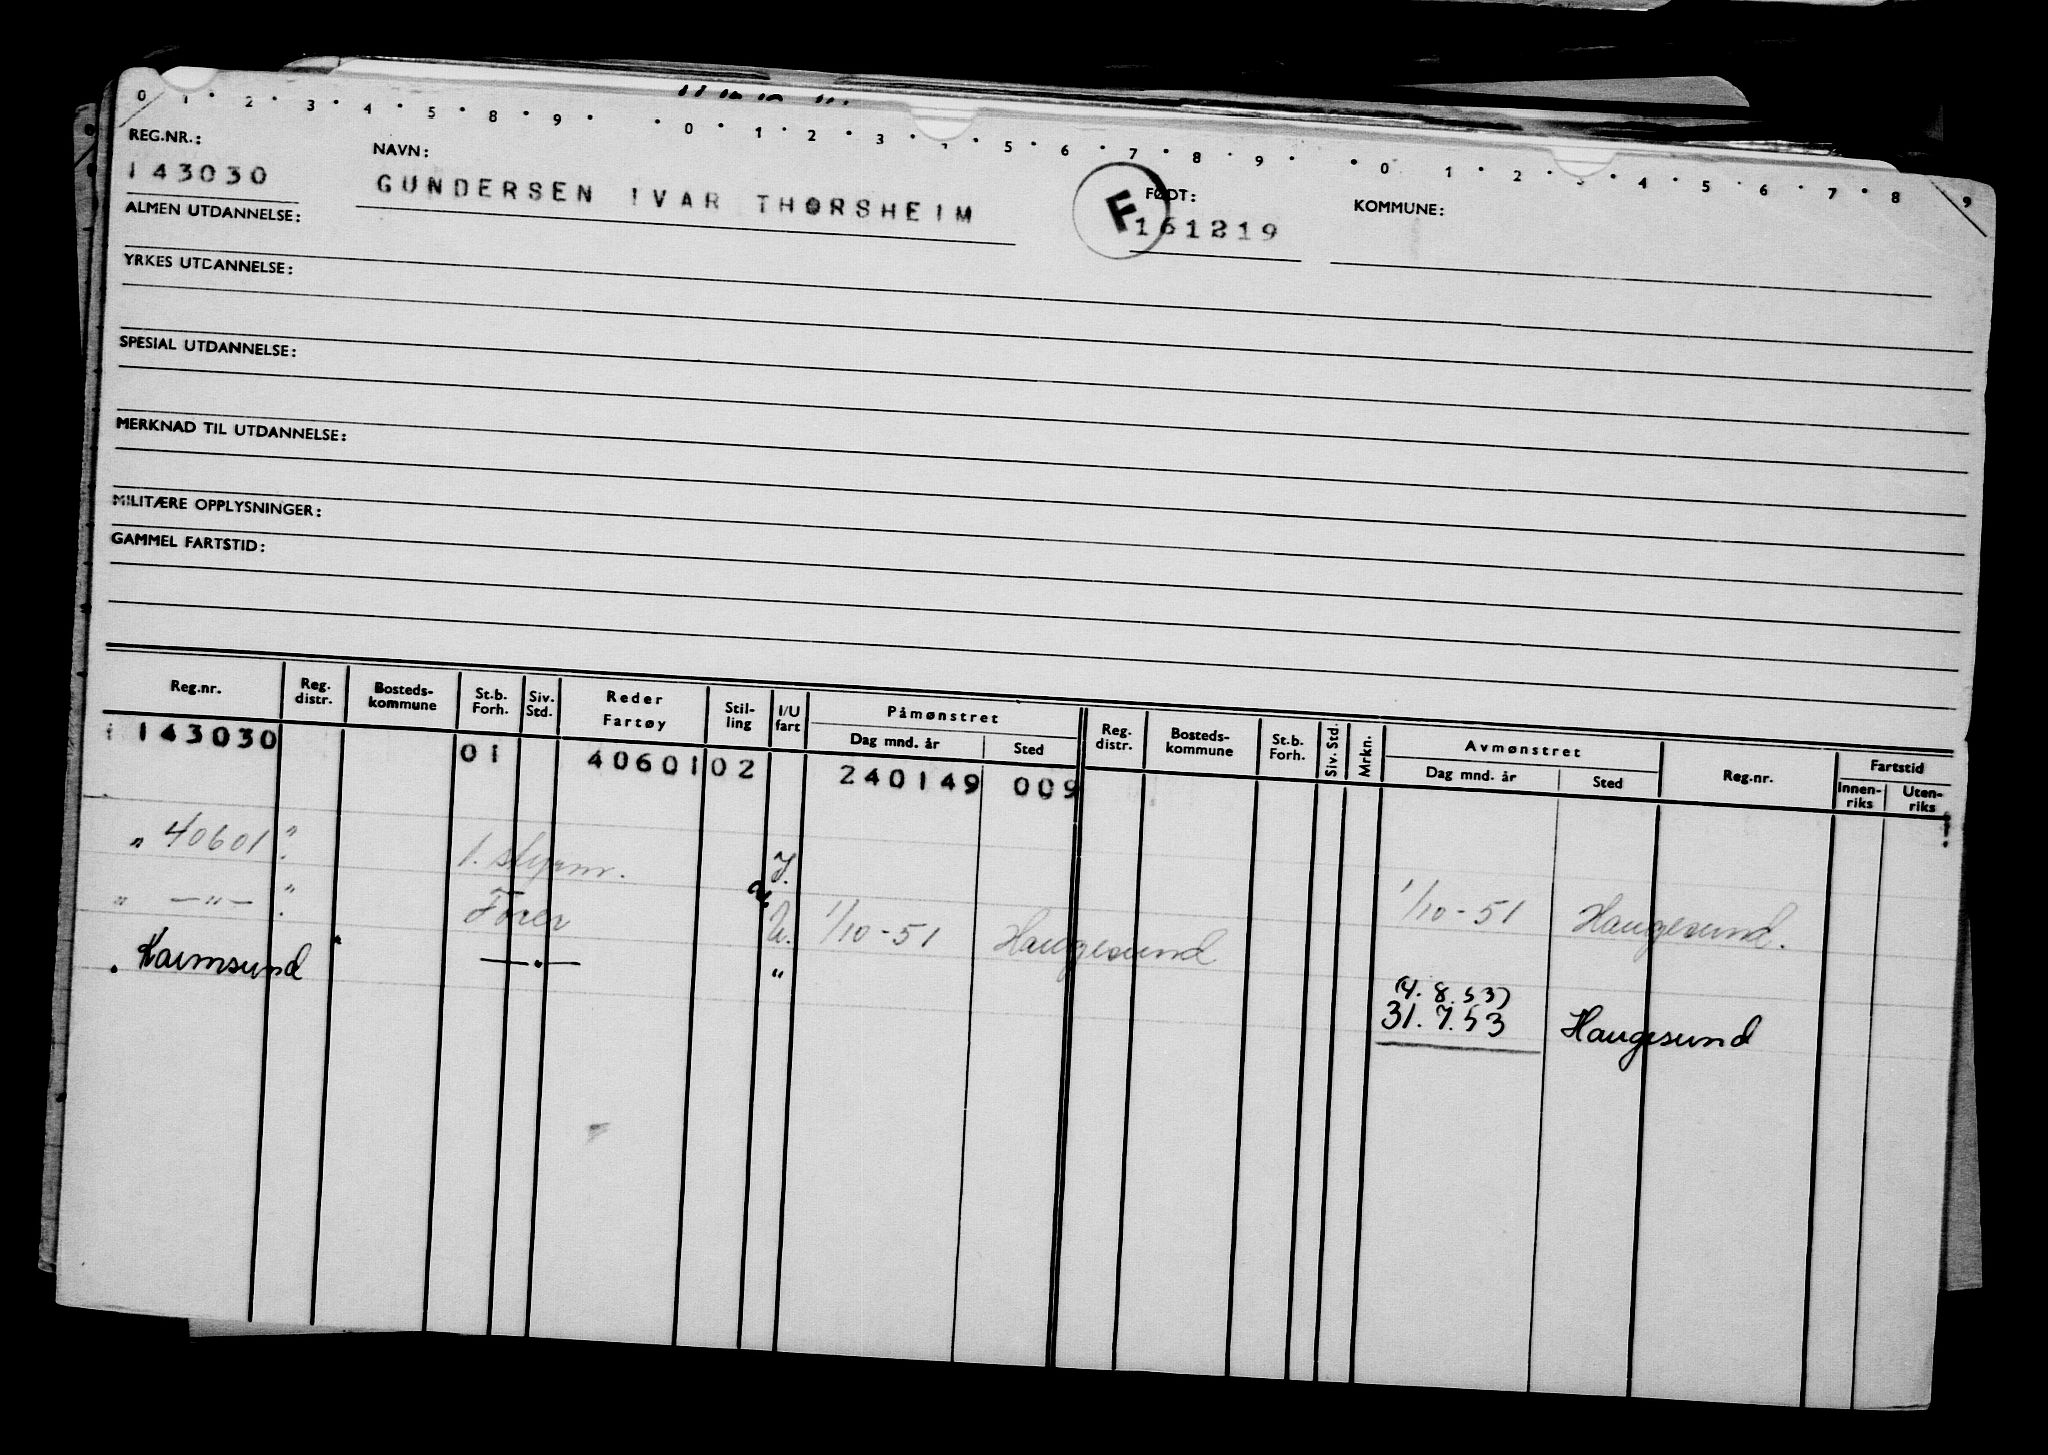 0 1 • 2 • 3 • 4 • 5 8 • 9 • • 0 • 1 • 2 • 3 • 5 • 6 • 7 • 8 • 9 • • 0 1 • 2 • 3 • 4 • 5 • 6 • 7 • 8 9
REG.NR.: NAVN: FØDT: KOMMUNE:
143030 GUNDERSEN IVAR THORSHEIM F 161219
ALMEN UTDANNELSE:
YRKES UTDANNELSE:
SPESIAL UTDANNELSE:
MERKNAD TIL UTDANNELSE:
MILITÆRE OPPLYSNINGER:
GAMMEL FARTSTID:
Reg.nr. Reg. distr. Bosteds- kommune St.b. Forh. Siv. Std. Reder Fartøy Stil- ling I/U fart Påmønstret Dag mnd. år Sted Reg. distr. Bosteds- kommune St.b. Forh. Siv. Std. Mrkn. Avmønstret Dag mnd. år Sted Reg.nr. Fartstid Innen- riks Uten- riks
143030 01 40601 02 240149 009
" 40601 ". 1. styrm. I. 1/10-51 Haugesund.
" —"— ". Fører U. 1/10-51 Haugesund
. Karmsund —.— " (4.8.53)
31.7.53 Haugesund